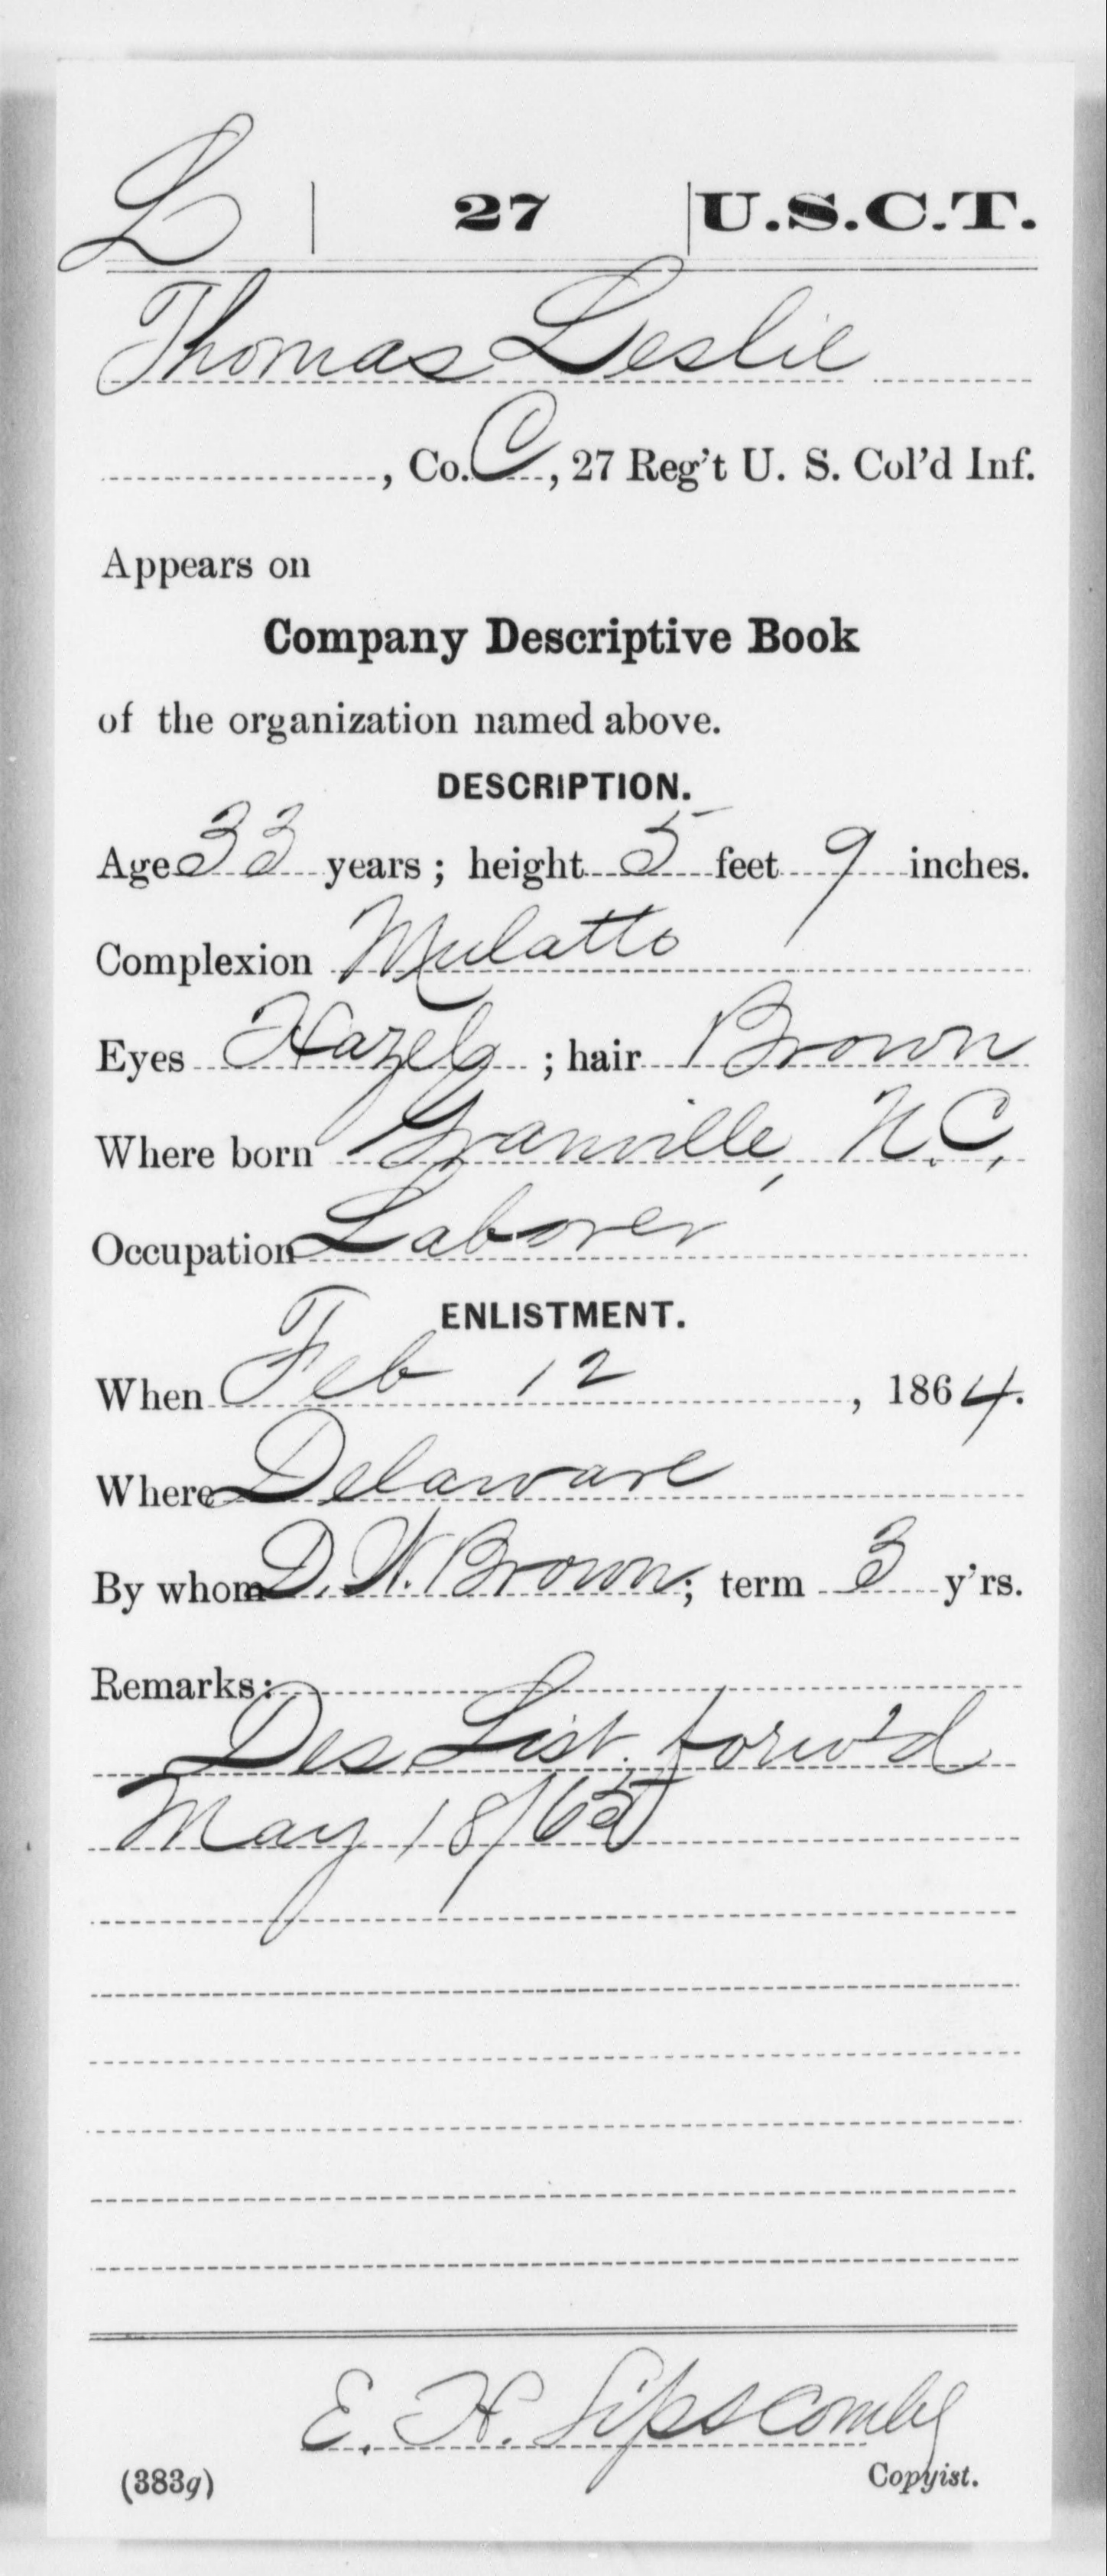 L | 27 | U.S.C.T.
Thomas Leslie
, Co. C, 27 Reg't U. S. Col'd Inf.
Appears on
Company Descriptive Book
of the organization named above.
DESCRIPTION.
Age 33 years; height 5 feet 9 inches.
Complexion Mulatto
Eyes Hazel; hair Brown
Where born Granville, N.C.
Occupation Laborer
ENLISTMENT.
When Feb 12, 1864.
Where Delaware
By whom D. W. Brown; term 3 y'rs.
Remarks:
Des. List. forw'd
May 18/65
E. H. Lipscomb
(383g) Copyist.